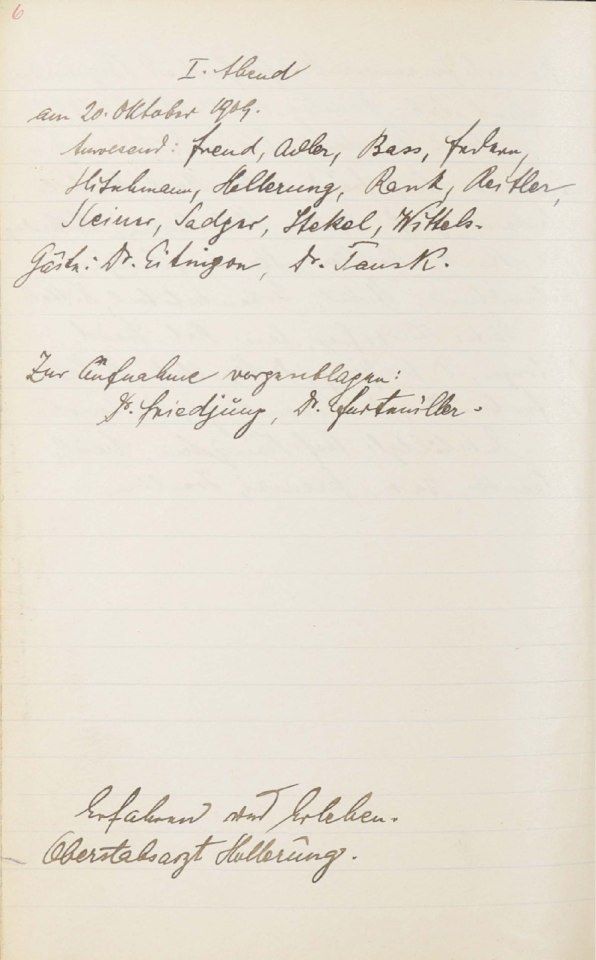 6
I. Abend
am 20. Oktober 1909.
Anwesend: Freud, Adler, Bass, Federn,
Hitschmann, Hollerung, Rank, Reitler,
Steiner, Sadger, Stekel, Wittels.
Gäste: Dr. Eitingon, Dr. Tausk.
Zur Aufnahme vorgeschlagen:
Dr. Friedjung, Dr. Furtmüller.
Erfahren und Erleben.
Oberstabsarzt Hollerung.